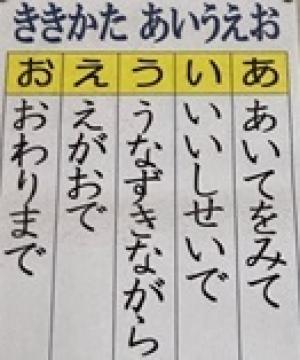 ききかた あいうえお
あ あいてをみて
い いいしせいで
う うなずきながら
え えがおで
お おわりまで